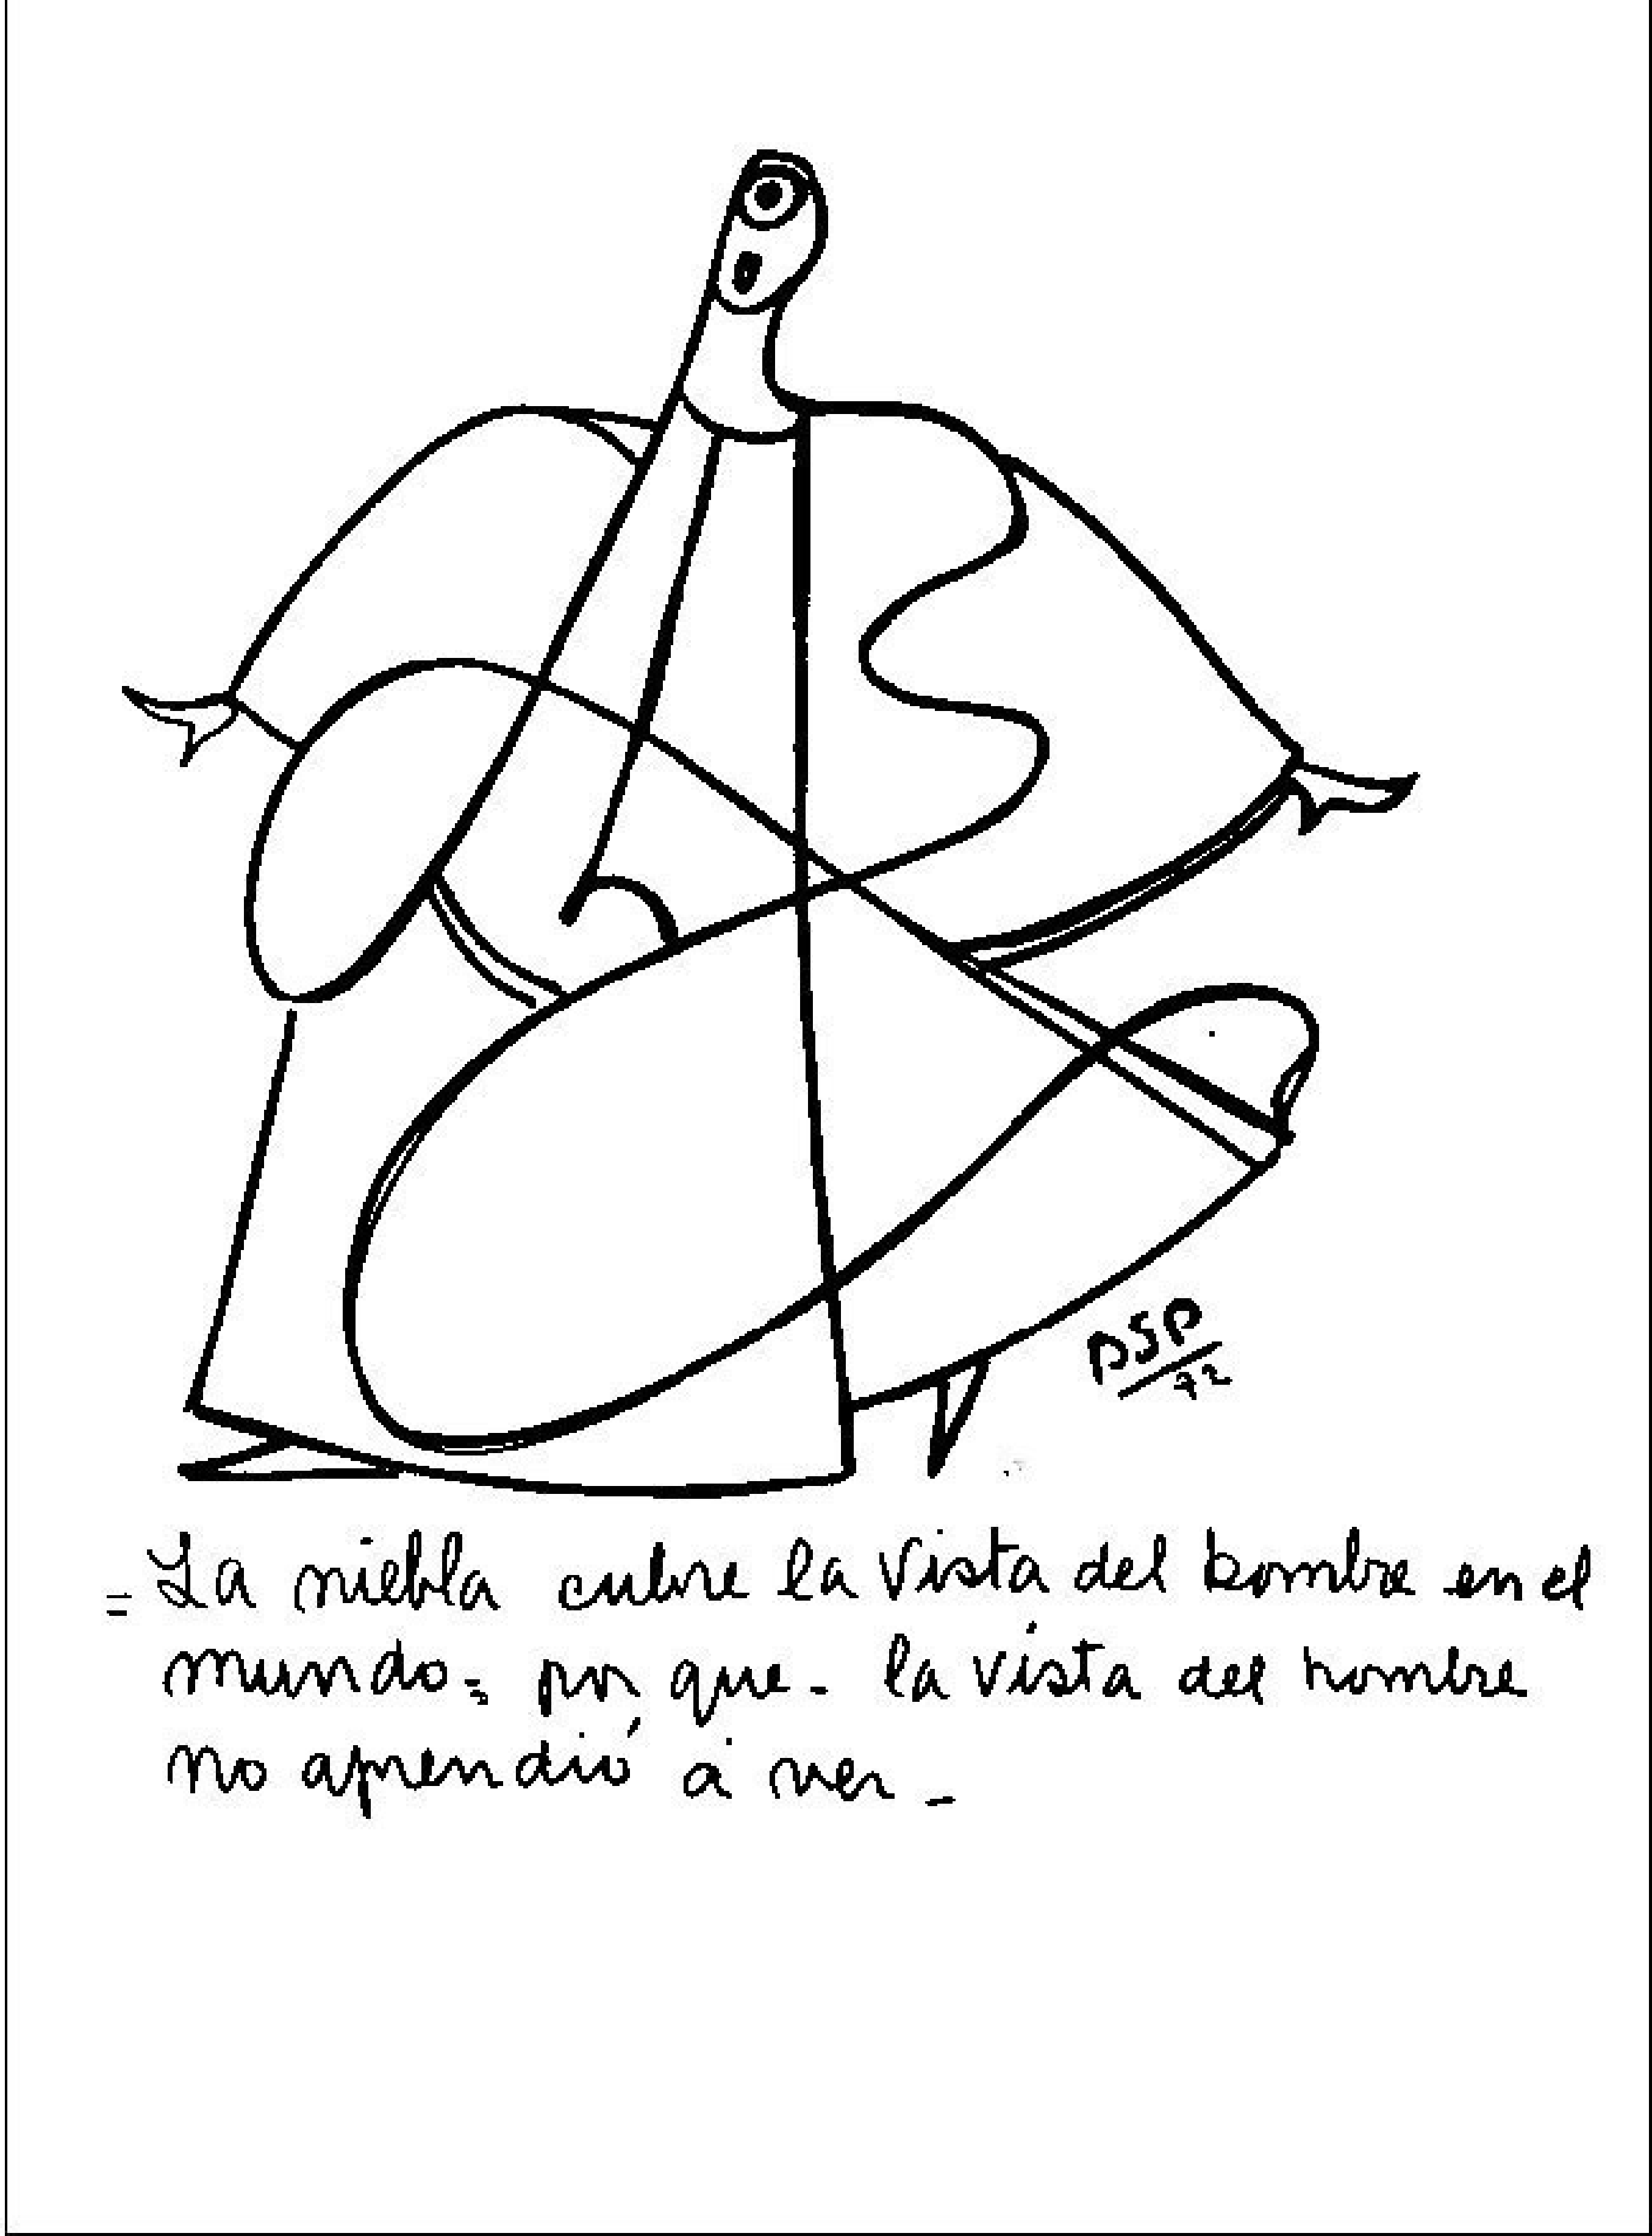 DSP
72
= La niebla cubre la vista del hombre en el
mundo = por que - la vista del hombre
no aprendió á ver -